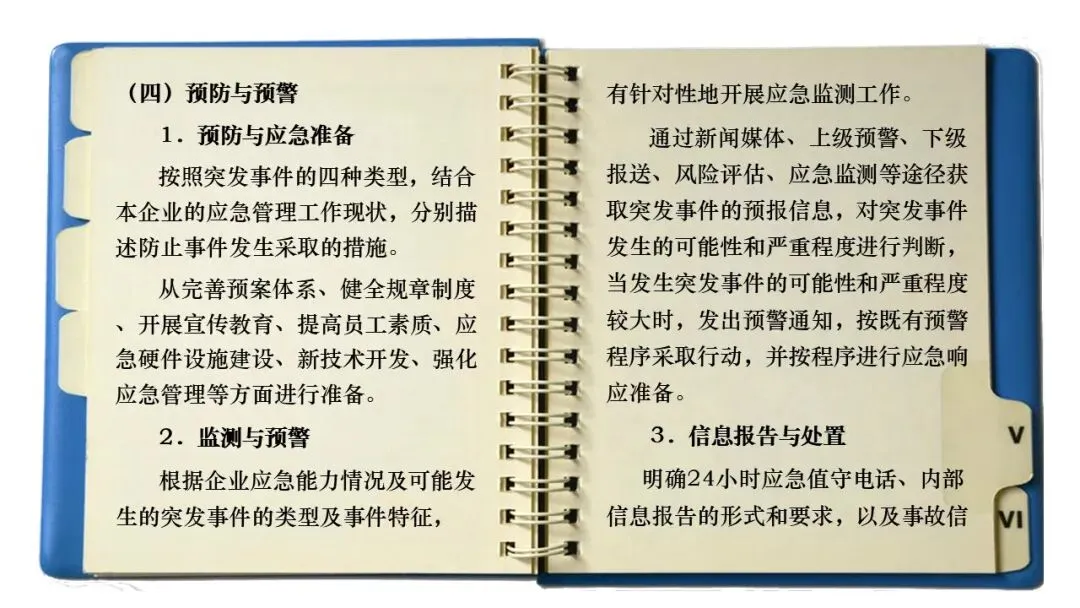 （四）预防与预警
1．预防与应急准备
按照突发事件的四种类型，结合
本企业的应急管理工作现状，分别描
述防止事件发生采取的措施。
从完善预案体系、健全规章制度
、开展宣传教育、提高员工素质、应
急硬件设施建设、新技术开发、强化
应急管理等方面进行准备。
2．监测与预警
根据企业应急能力情况及可能发
生的突发事件的类型及事件特征，
有针对性地开展应急监测工作。
通过新闻媒体、上级预警、下级
报送、风险评估、应急监测等途径获
取突发事件的预报信息，对突发事件
发生的可能性和严重程度进行判断，
当发生突发事件的可能性和严重程度
较大时，发出预警通知，按既有预警
程序采取行动，并按程序进行应急响
应准备。
3．信息报告与处置
明确24小时应急值守电话、内部
信息报告的形式和要求，以及事故信
V
VI